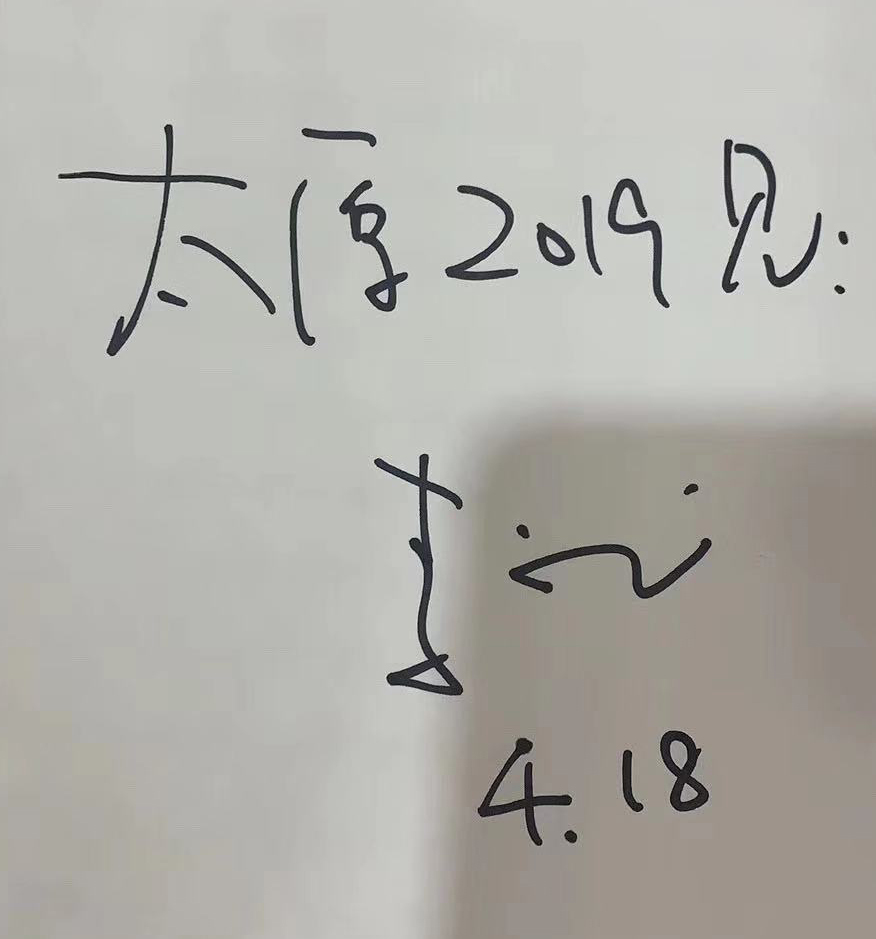 太原2019见:
4.18